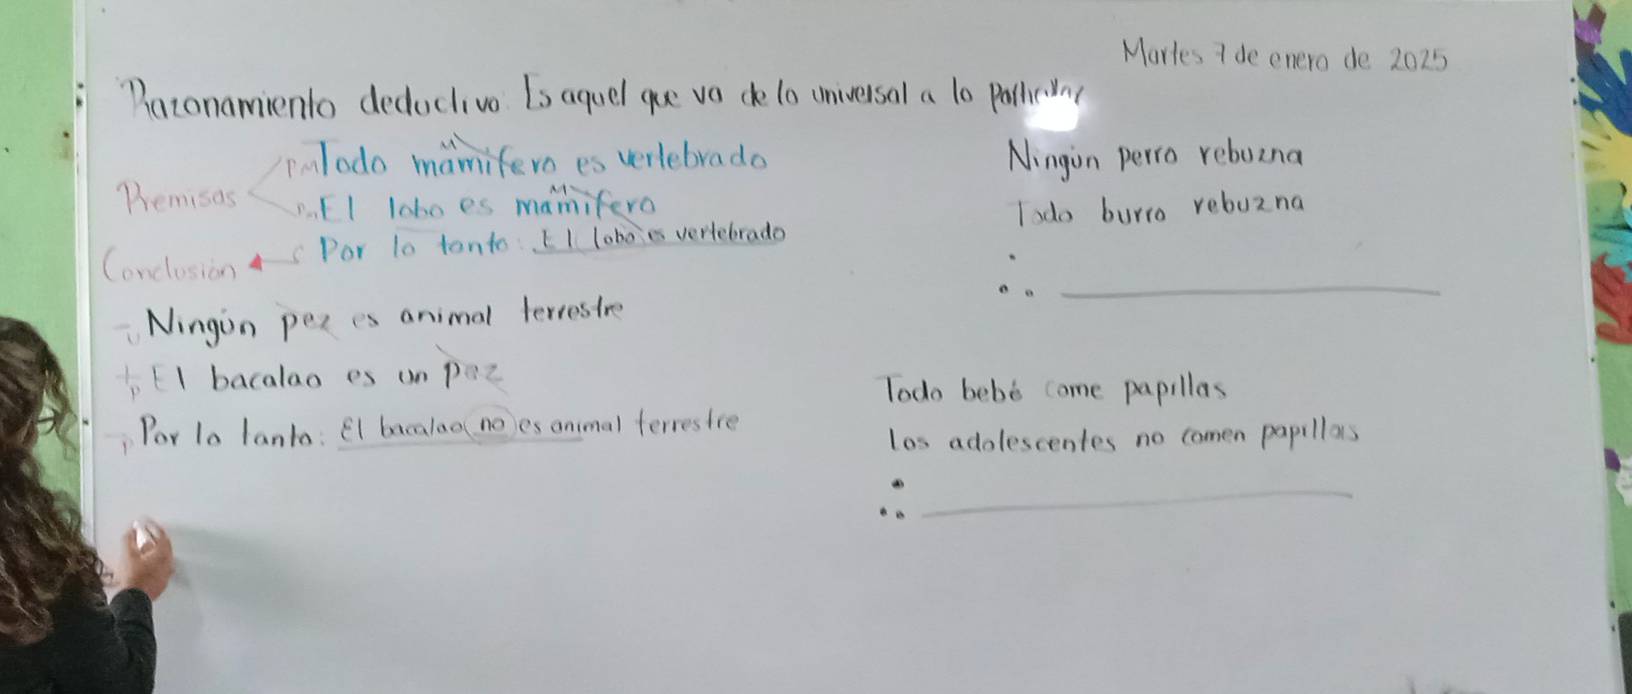 Martes 7 de enero de 2025
Razonamiento deductivo: Es aquel que va de lo universal a lo particular
Premisas
PM Todo mamifero es vertebrado
M
Pm El lobo es mamifero
M
Conclusión
C Por lo tanto: El lobo es vertebrado
- Ningún pez es animal terrestre
+ P El bacalao es un pez
- P Por lo tanto: El bacalao no es animal terrestre
Ningún perro rebuzna
Todo burro rebuzna
∴
Todo bebé come papillas
los adolescentes no comen papillas
∴